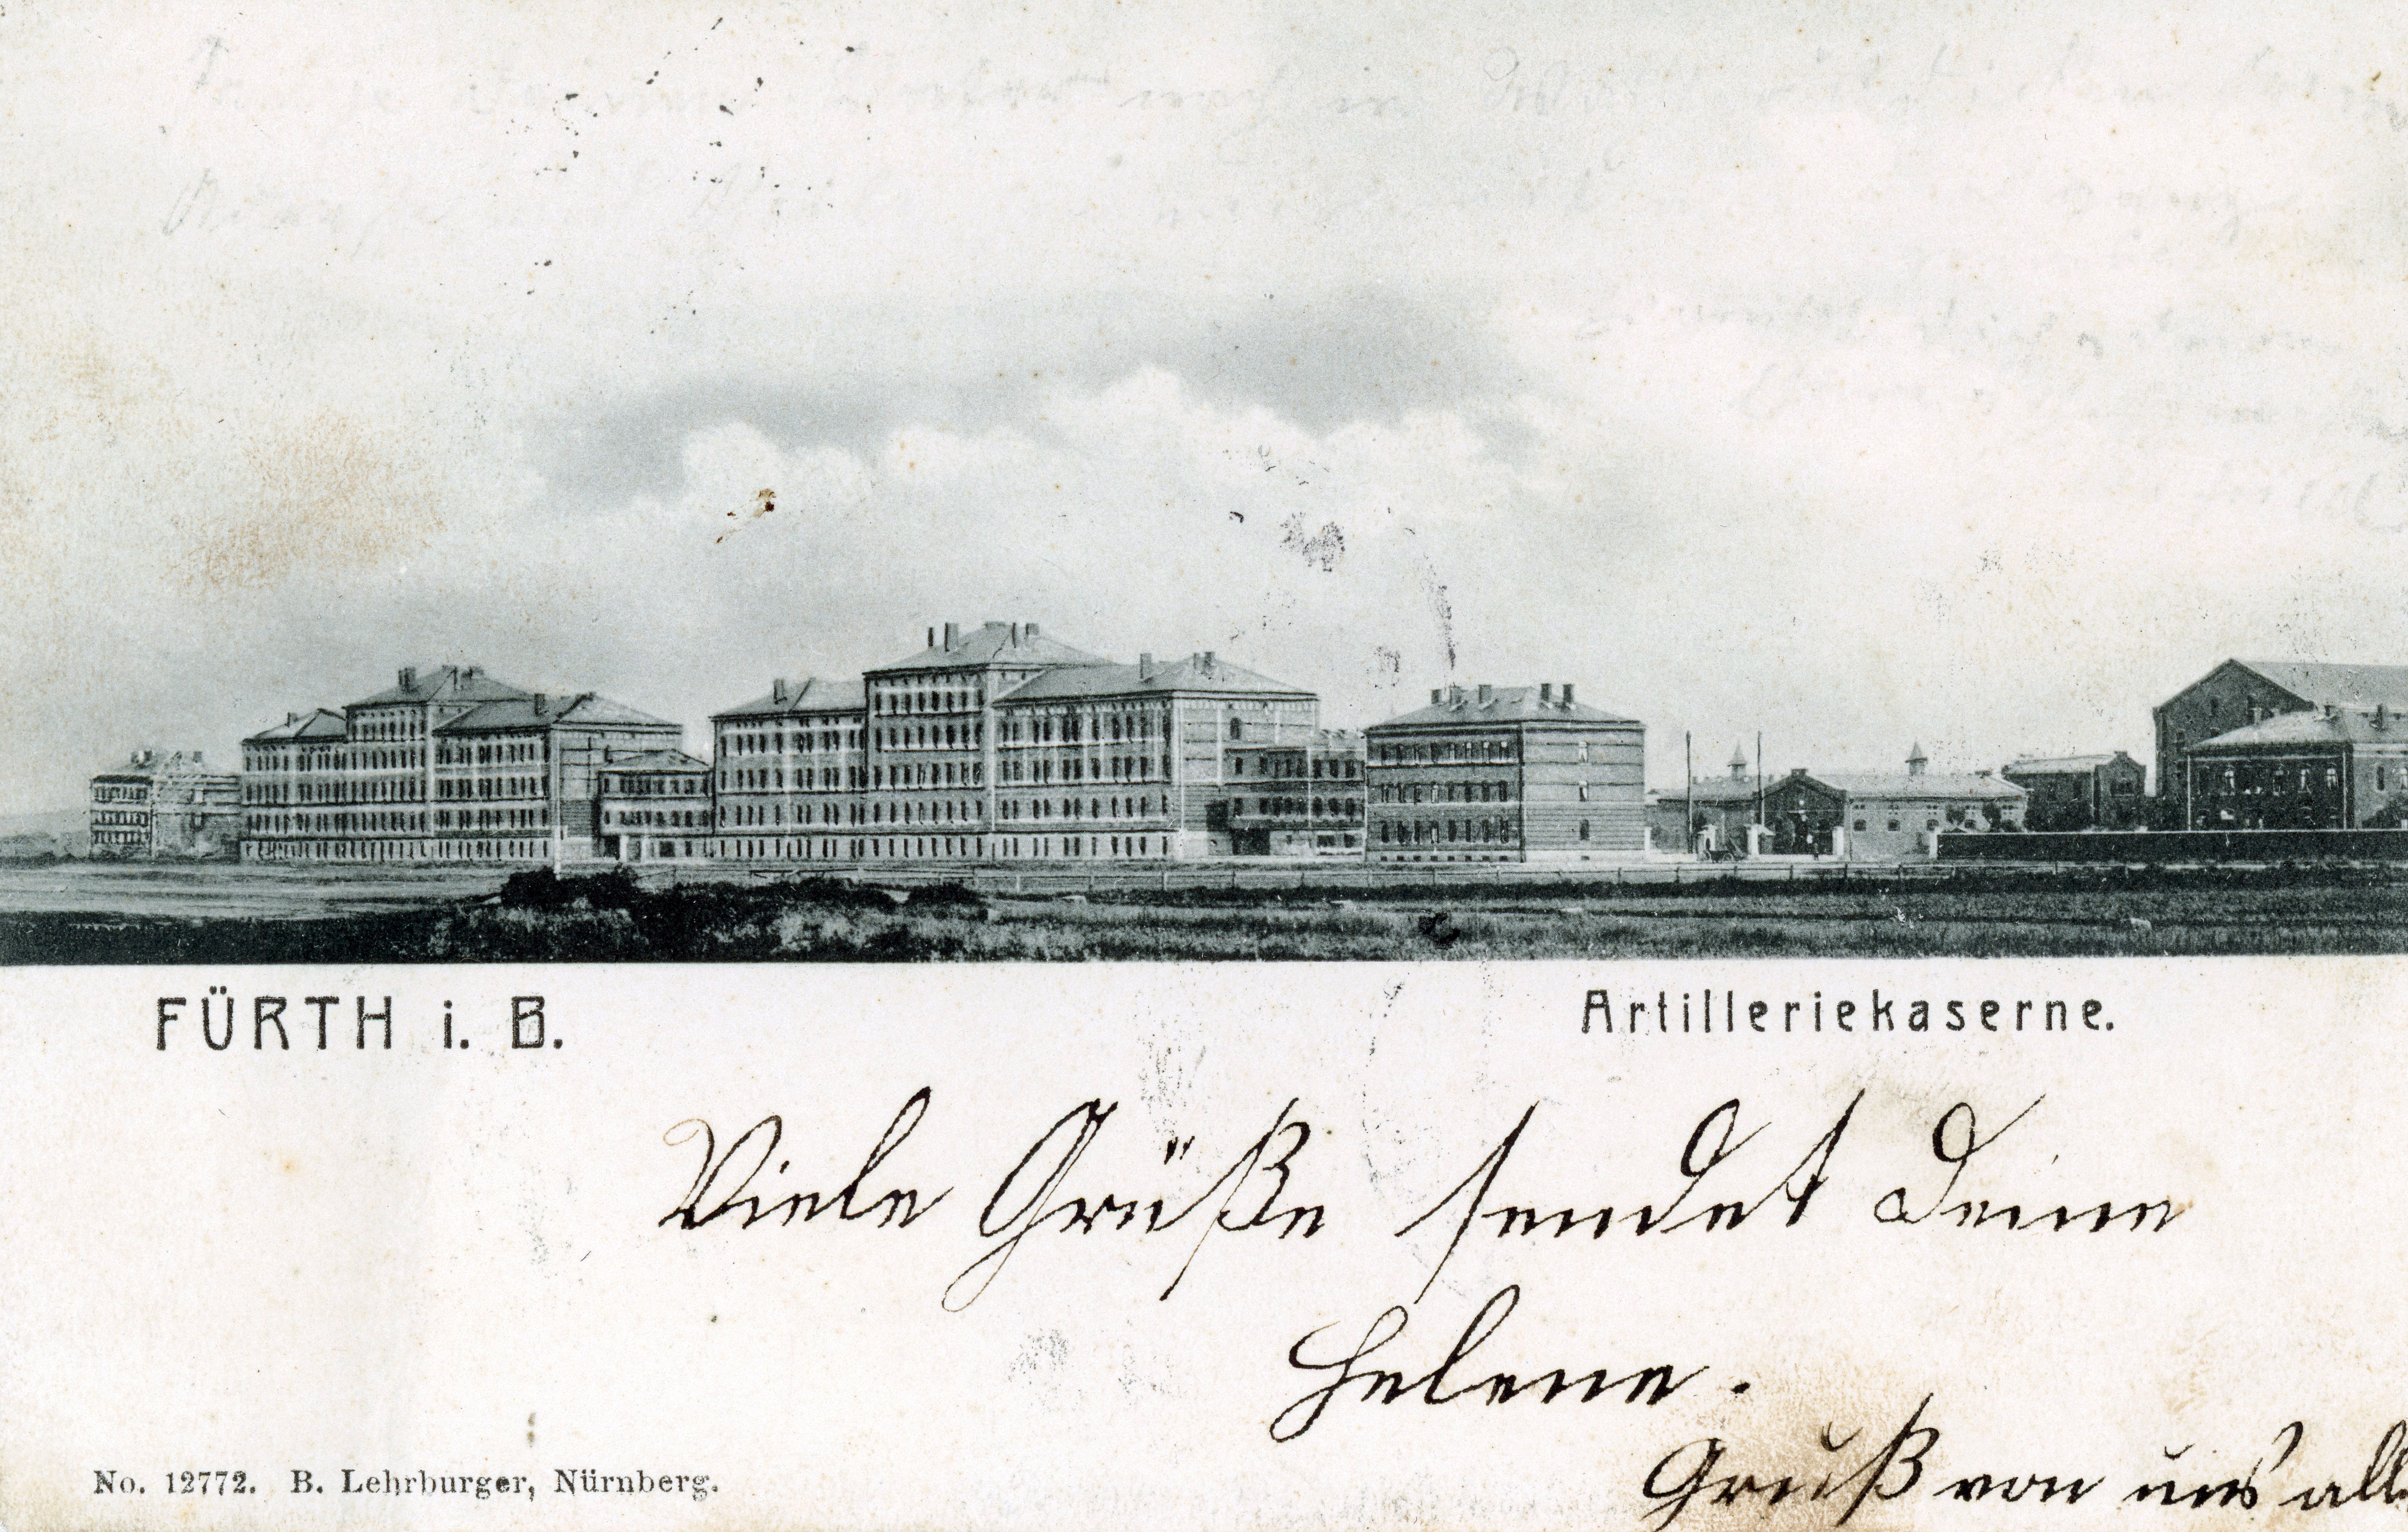 FÜRTH i. B.
Artilleriekaserne.
Viele Grüße sendet Deine
Helene.
Gruß von uns all
No. 12772. B. Lehrburger, Nürnberg.